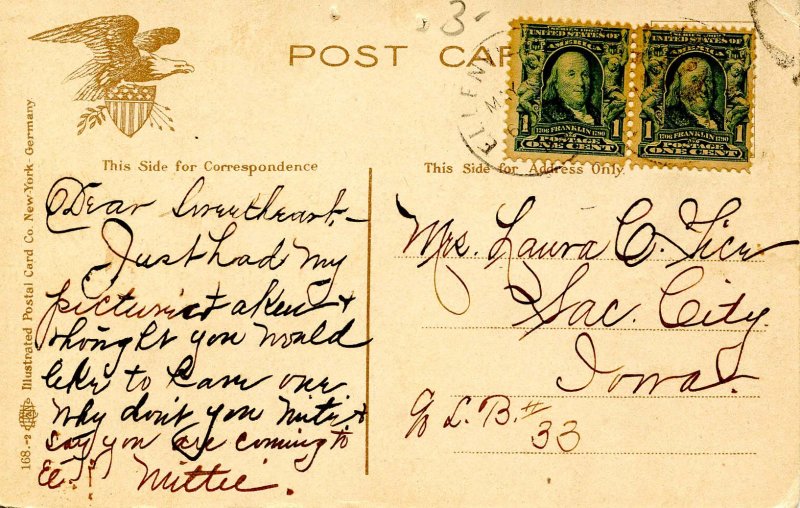 3
POST CAR
ELLEN
SERIES 1902
UNITED STATES OF
AMERICA
1706 FRANKLIN 1790
1 1
POSTAGE
ONE CENT
UNITED STATES OF
AMERICA
1706 FRANKLIN 1790
1 1
POSTAGE
ONE CENT
This Side for Correspondence
This Side for Address Only.
Dear Sweetheart,-
Just had my
pictures taken &
thought you would
like to have one
Why don't you write &
say you are coming to
E.! Mittie.
Mrs. Laura C.
Sac. City.
Iowa.
c/o L. B. #
33
168.-2 Illustrated Postal Card Co. New-York-Germany.